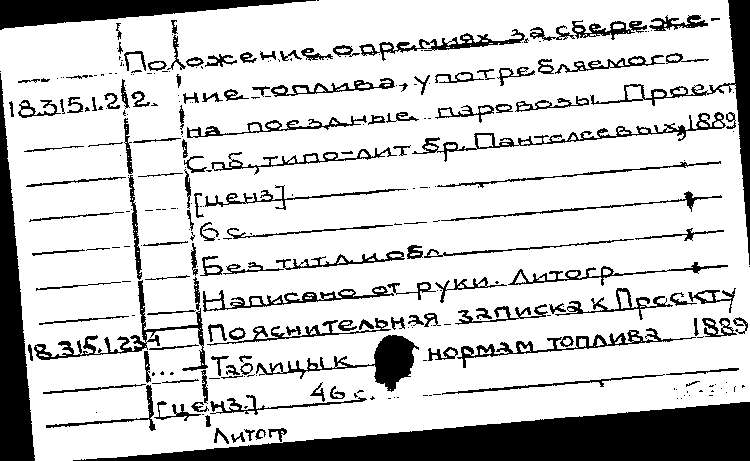 Положение о премиях за сбереже-
18.315.1.212. ние топлива, употребляемого
на поездные паровозы. Проект
Спб., типо-лит. бр. Пантелеевых, 1889
[ценз].
6 с.
Без тит. л. и обл.
Написано от руки. Литогр.
Пояснительная записка к Проекту
18.315.1.234
... — Таблицы к нормам топлива. 1889
[ценз.]. 46 с.
Литогр